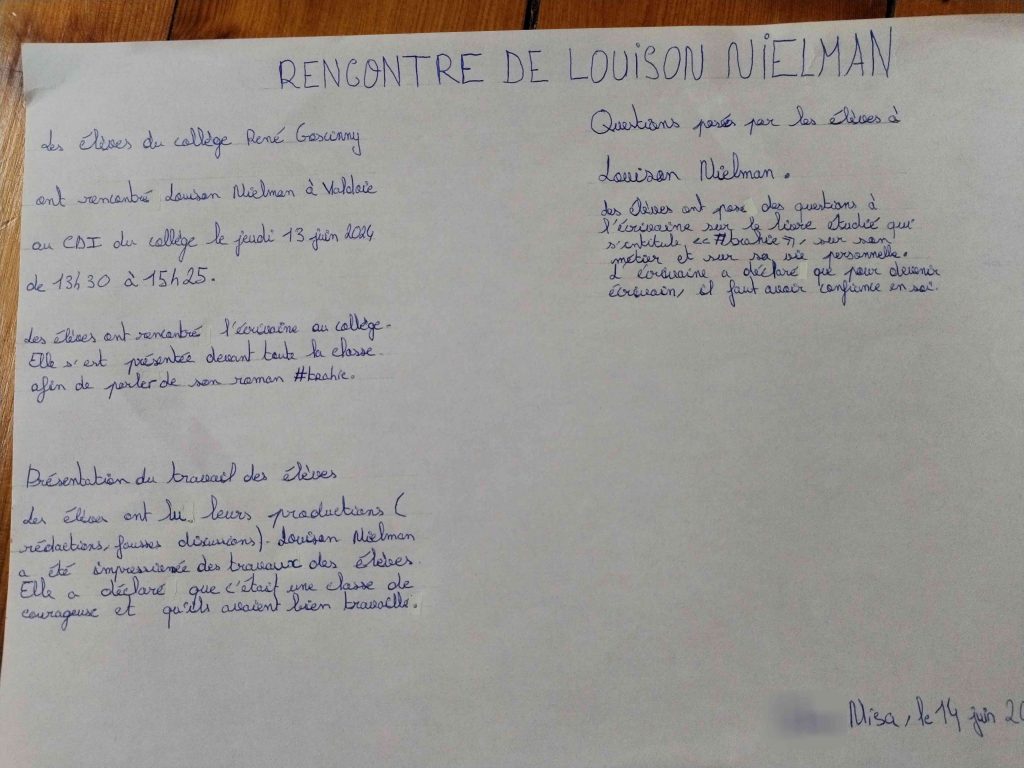 RENCONTRE DE LOUISON NIELMAN
Les élèves du collège René Goscinny
ont rencontré Louison Nielman à Valdoie
au CDI du collège le jeudi 13 juin 2024
de 13h30 à 15h25.
Les élèves ont rencontré l'écrivaine au collège.
Elle s'est présentée devant toute la classe
afin de parler de son roman #bахіe.
Présentation du travail des élèves
Les élèves ont lu leurs productions (
rédactions, fausses discussions). Louison Nielman
a été impressionée des travaux des élèves.
Elle a déclaré que c'était une classe de
courageuse et qu'ils avaient bien travaillé.
Questions posés par les élèves à
Louison Nielman.
Les élèves ont posé des questions à
l'écrivaine sur le livre étudié qui
s'intitule << >>, sur son
métier et sur sa vie personnelle.
L'écrivaine a déclaré que pour devenir
écrivain, il faut avoir confiance en soi.
Misa, le 14 juin 20